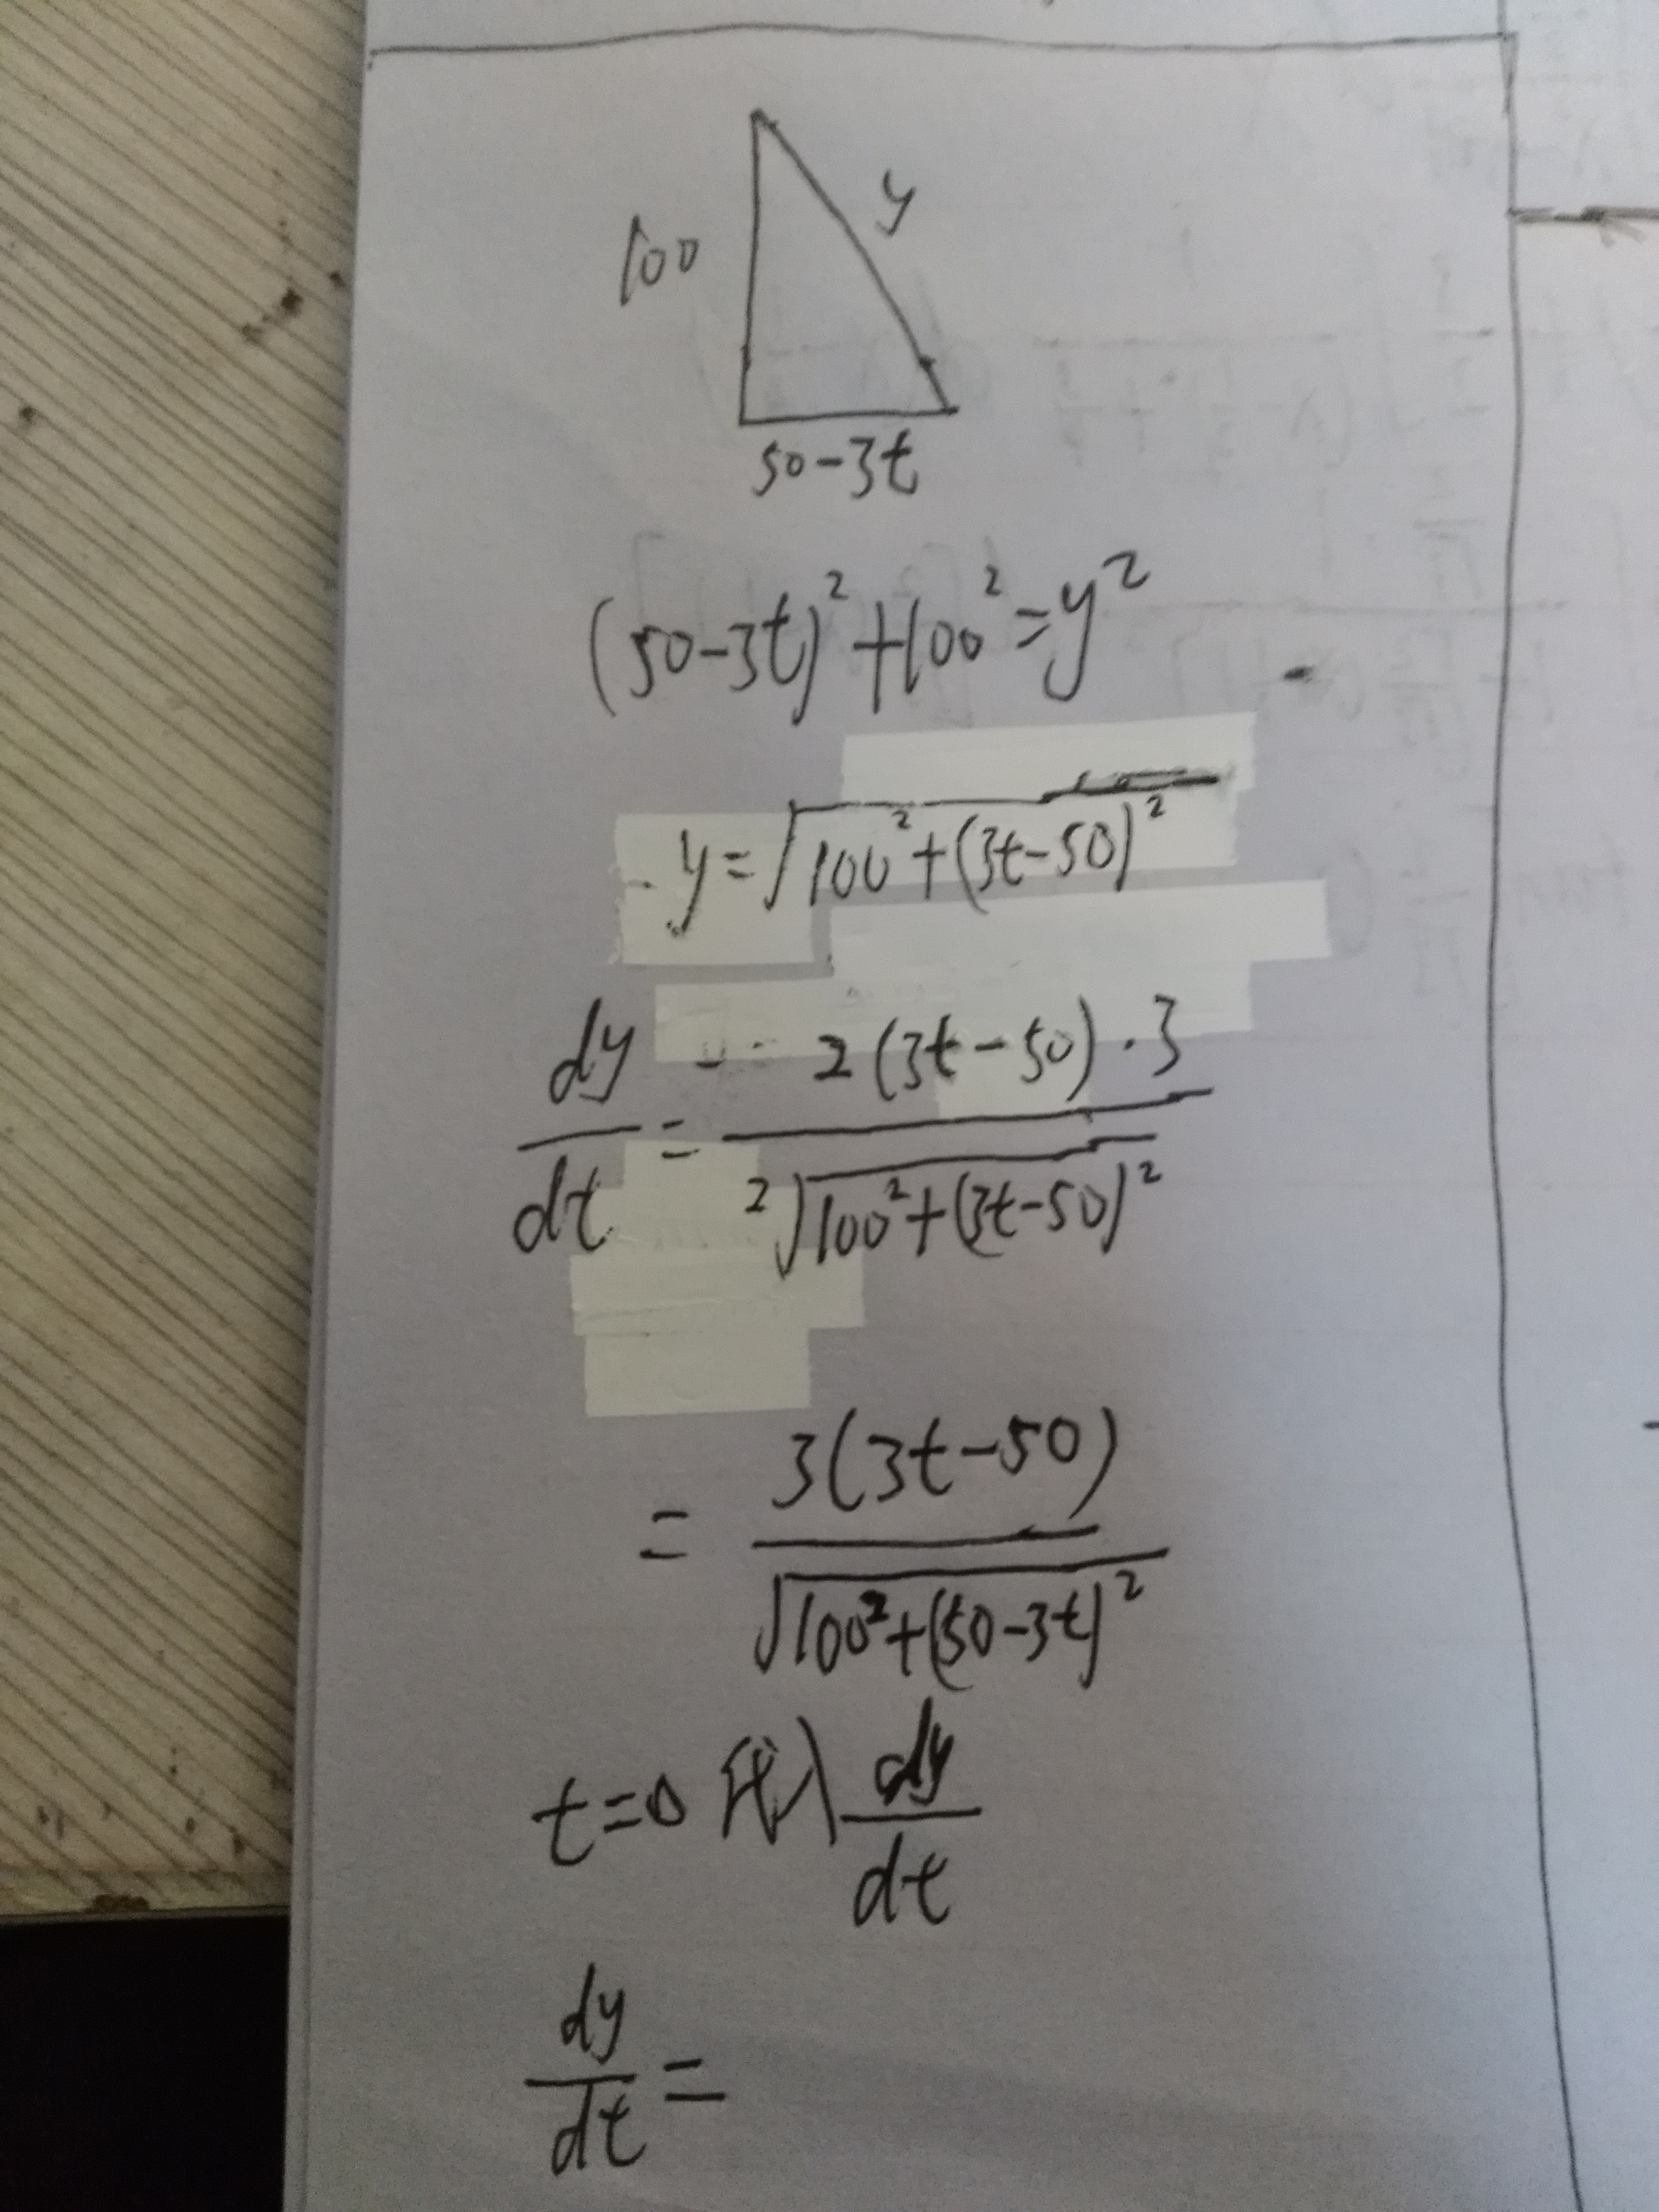 100
y
50-3t
(50-3t)²+100²=y²
y=√100²+(3t-50)²
dy/dt = 2(3t-50)·3 / 2√100²+(3t-50)²
= 3(3t-50) / √100²+(50-3t)²
t=0 代入 dy/dt
dy/dt =